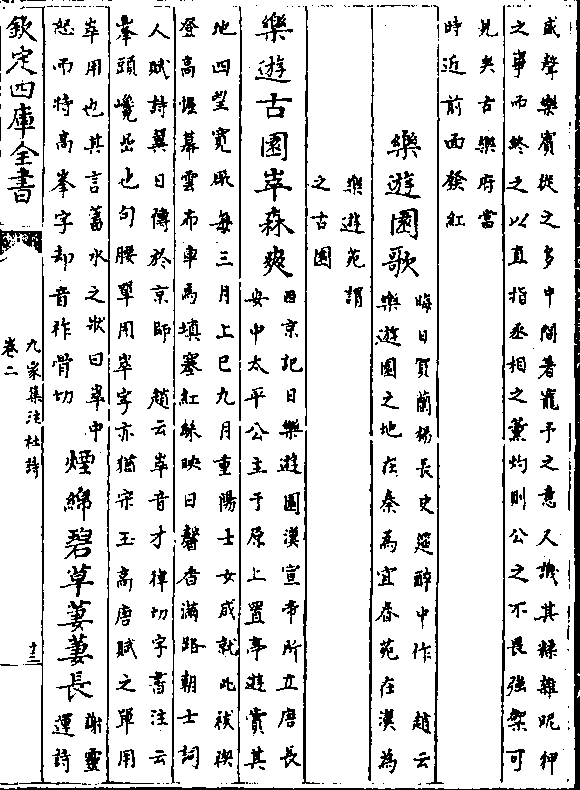 盛聲樂賓從之多中間著寵予之意又譏其糅雜昵狎
之事而終之以直指丞相之薰灼則公之不畏強禦可
見矣古樂府當
時近前面發紅
樂遊園歌
晦日賀蘭楊長史筵醉中作 趙云
樂遊園之地在秦為宜春苑在漢為
樂遊苑謂
之古園
樂遊古園崒森爽
西京記曰樂遊園漢宣帝所立唐長
安中太平公主于原上置亭遊賞其
地四望寬敞每三月上巳九月重陽士女咸就此祓禊
登高幄幕雲布車馬填塞紅綵映日馨香滿路朝士詞
人賦詩翼日傳於京師 趙云崒音才律切字書注云
峯頭巉嵒也句腰單用崒字亦猶宋玉高唐賦之單用
崒用也其言蓄水之狀曰崒中
怒而特高峯字却音祚骨切
煙綿碧草萋萋長
謝靈
運詩
欽定四庫全書
九家集注杜詩
卷二
十三